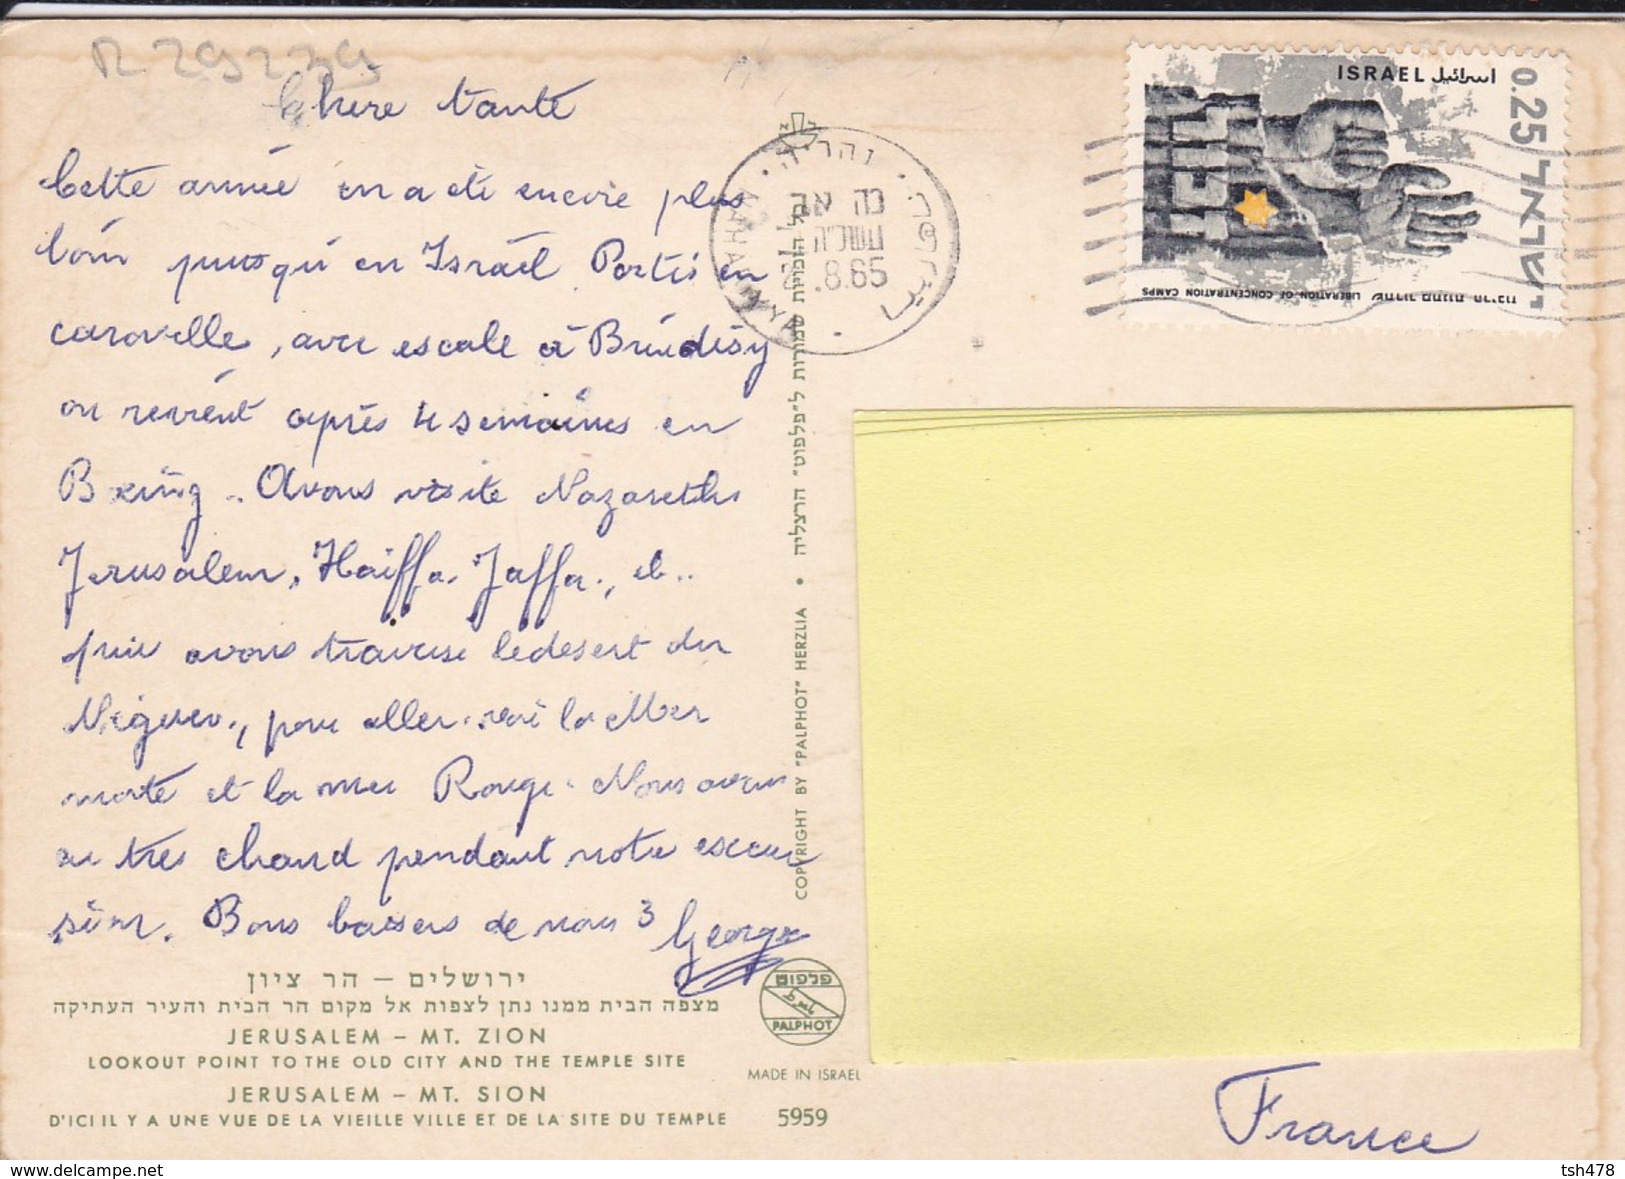 R 29239
Chere tante
Cette année on a été encore plus
loin jusqu'en Israël Partis en
caravelle, avec escale à Brindisy
on revient après 4 semaines en
Boeing. Avons visite Nazareth
Jerusalem, Haiffa, Jaffa, et..
puis avons traverse le desert du
Neguev, pour aller voir la Mer
morte et la mer Rouge. Nous avons
eu tres chaud pendant notre excur
sion. Bons baisers de nous 3 George
ירושלים – הר ציון
מצפה הבית ממנו נתן לצפות אל מקום הר הבית והעיר העתיקה
JERUSALEM – MT. ZION
LOOKOUT POINT TO THE OLD CITY AND THE TEMPLE SITE
JERUSALEM – MT. SION
D'ICI IL Y A UNE VUE DE LA VIEILLE VILLE ET DE LA SITE DU TEMPLE
כל הזכויות שמורות ל"פלפוט" הרצליה • COPYRIGHT BY "PALPHOT" HERZLIA
פלפוט
PALPHOT
MADE IN ISRAEL
5959
נהריה
NAHARIYYA
כה אב
.8.65
ISRAEL اسرائيل
0.25
ישראל
שחרור מחנות הריכוז LIBERATION OF CONCENTRATION CAMPS
France
tsh478